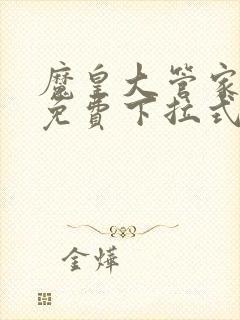 魔皇大管家
免費下拉式
金燁